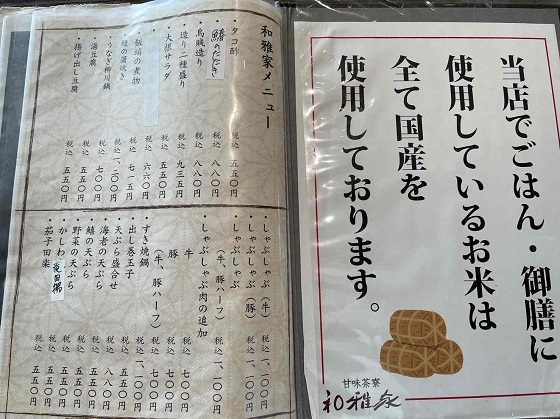 和雅家メニュー
・タコ酢 税込 五五〇円
鰆のたたき 税込 八八〇円
・烏賊造り 税込 八八〇円
・造り二種盛り 税込 九三五円
・大根サラダ 税込 五五〇円
税込 六六〇円
・飯蛸の煮物 税込 七一五円
・鰻の蒲焼き 税込 一、二〇〇円
・うなぎ柳川鍋 税込 七〇〇円
・湯豆腐 税込 五五〇円
・揚げ出し豆腐 税込 五五〇円
・しゃぶしゃぶ（牛） 税込 一、二〇〇円
・しゃぶしゃぶ（豚） 税込 一、一〇〇円
・しゃぶしゃぶ
（牛、豚ハーフ） 税込 一、一〇〇円
・しゃぶしゃぶ肉の追加
牛 税込 七〇〇円
豚 税込 七〇〇円
（牛、豚ハーフ） 税込 七〇〇円
・すき焼鍋 税込 一、一〇〇円
・出し巻玉子 税込 五五〇円
・天ぷら盛合せ 税込 五五〇円
・海老の天ぷら 税込 八八〇円
・鱚の天ぷら 税込 五五〇円
・野菜の天ぷら 税込 五五〇円
・かしわ 税込 五五〇円
・茄子田楽 税込 五五〇円
当店でごはん・御膳に
使用しているお米は
全て国産を
使用しております。
甘味茶寮
和雅家